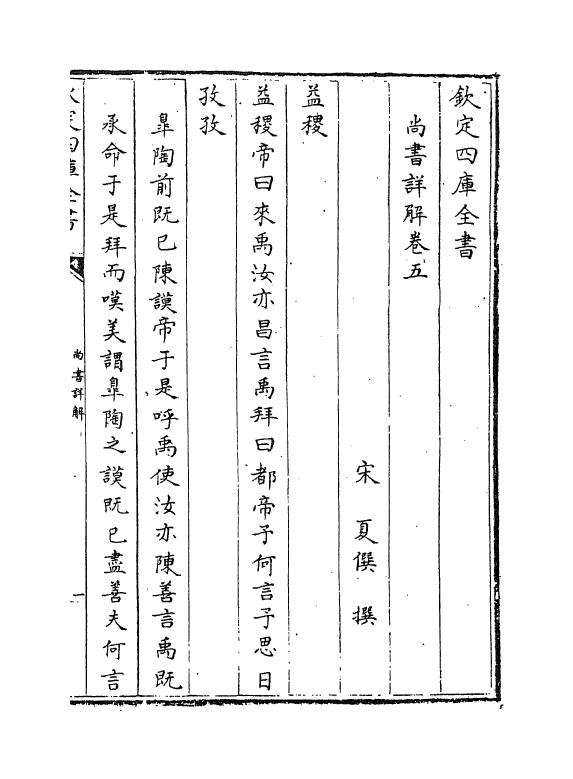 欽定四庫全書
尚書詳解卷五
宋　夏僎　撰
益稷
益稷帝曰來禹汝亦昌言禹拜曰都帝予何言予思日
孜孜
臯陶前既已陳謨帝于是呼禹使汝亦陳善言禹既
承命于是拜而嘆美謂臯陶之謨既已盡善夫何言
欽定四庫全書
尚書詳解
一